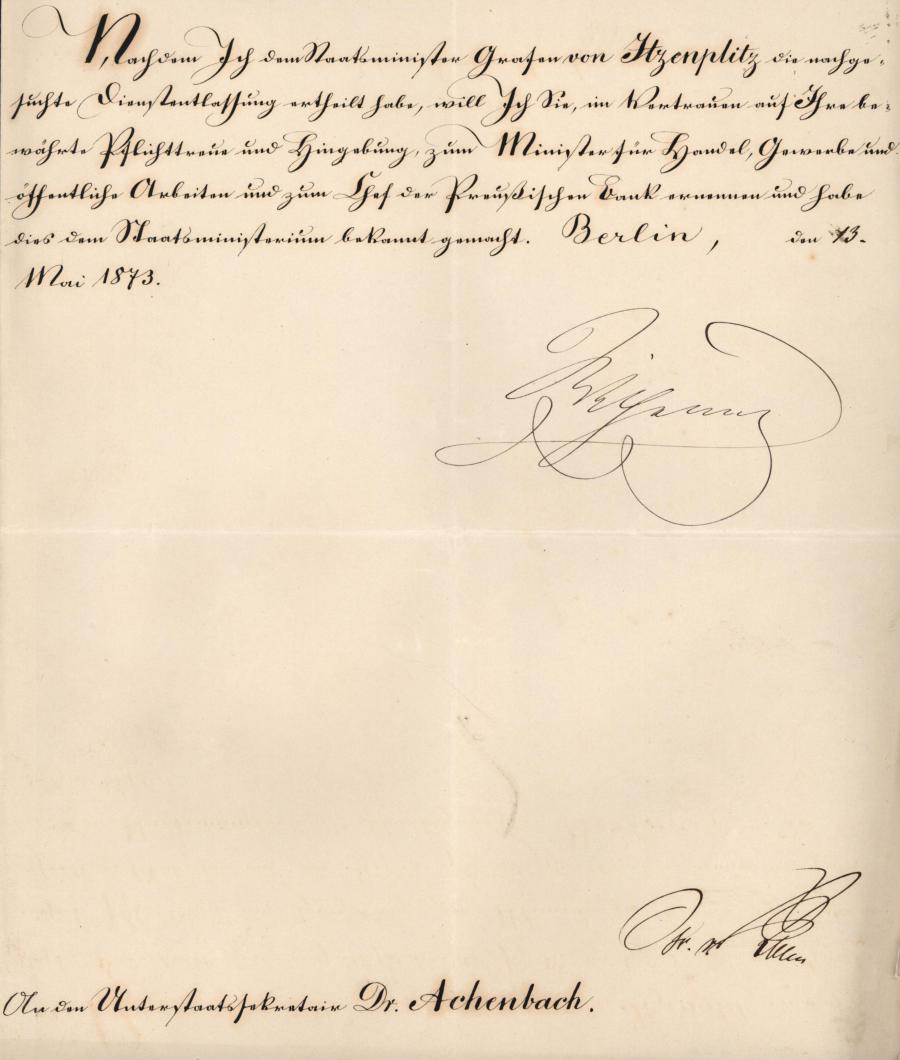 Nachdem Ich dem Staatsminister Grafen von Itzenplitz die nachge-
suchte Dienstentlassung ertheilt habe, will Ich Sie, im Vertrauen auf Ihre be-
währte Pflichttreue und Hingebung, zum Minister für Handel, Gewerbe und
öffentliche Arbeiten und zum Chef der Preußischen Bank ernennen und habe
dies dem Staatsministerium bekannt gemacht. Berlin, den 13.
Mai 1873.
Wilhelm
Gr. v Roon
An den Unterstaatssekretair Dr. Achenbach.